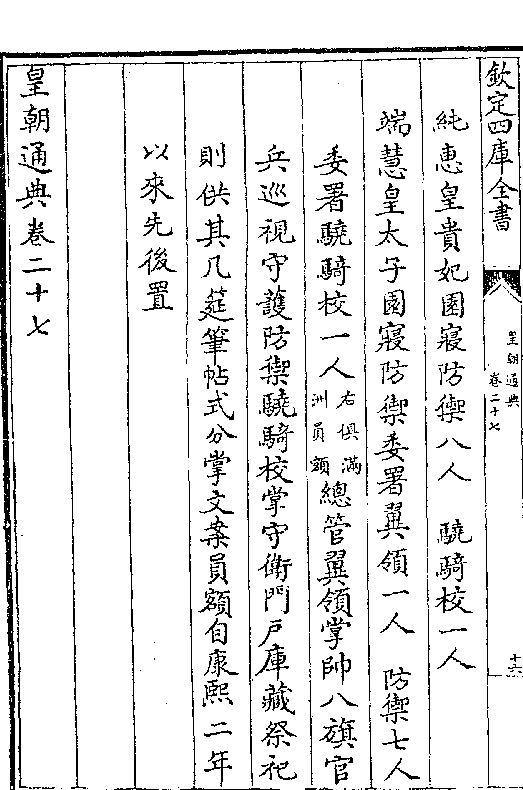 欽定四庫全書
皇朝通典
卷二十七
十六
純惠皇貴妃園寢防禦八人　驍騎校一人
端慧皇太子園寢防禦委署翼領一人　防禦七人
委署驍騎校一人右俱滿洲員額總管翼領掌帥八旗官
兵巡視守護防禦驍騎校掌守衛門戶庫藏祭祀
則供其几筵筆帖式分掌文案員額自康熙二年
以來先後置
皇朝通典卷二十七